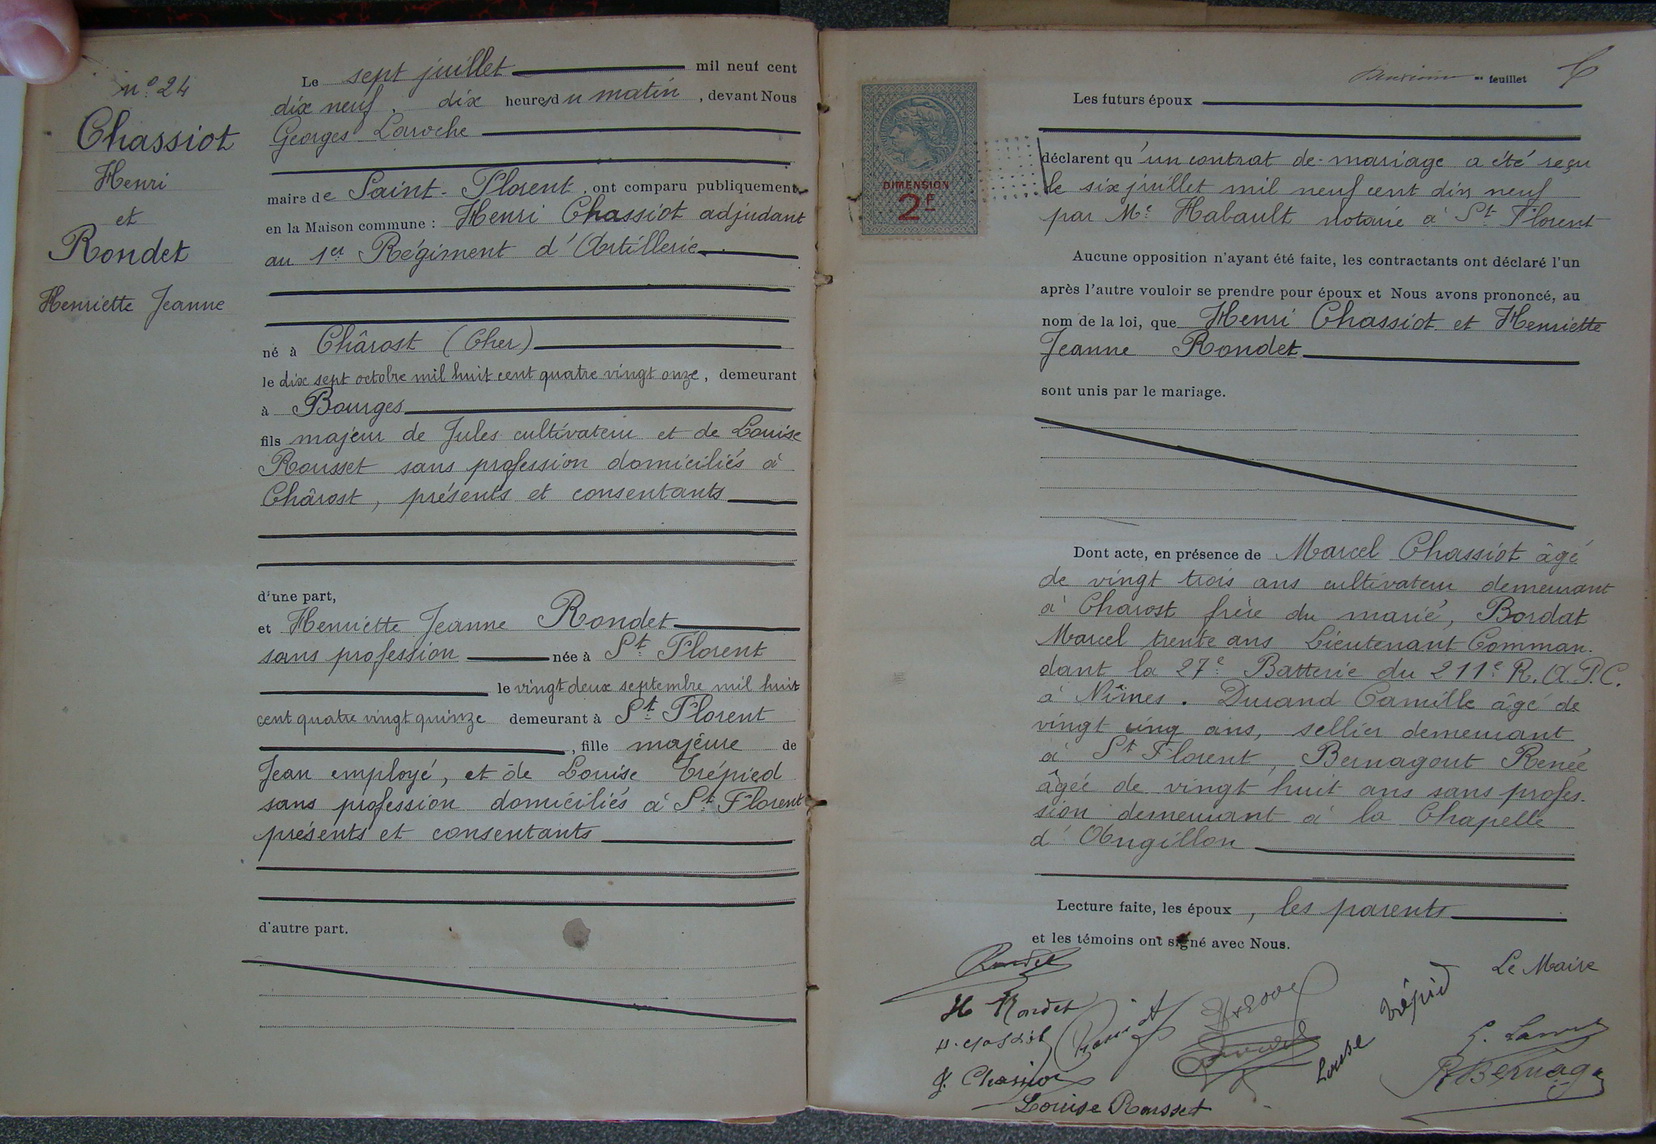 n° 24
Chassiot
Henri
et
Rondet
Henriette Jeanne
Le sept juillet mil neuf cent
dix neuf, dix heures du matin, devant Nous
Georges Laroche
maire de Saint-Florent, ont comparu publiquement
en la Maison commune : Henri Chassiot adjudant
au 1er Régiment d'Artillerie
né à Chârost (Cher)
le dix sept octobre mil huit cent quatre vingt onze, demeurant
à Bourges
fils majeur de Jules cultivateur et de Louise
Rousset sans profession domiciliés à
Chârost, présents et consentants
d'une part,
et Henriette Jeanne Rondet
sans profession née à St Florent
le vingt deux septembre mil huit
cent quatre vingt quinze demeurant à St Florent
, fille majeure de
Jean employé, et de Louise Trépied
sans profession domiciliés à St Florent
présents et consentants
d'autre part.
feuillet
DIMENSION
2F
Les futurs époux
déclarent qu'un contrat de mariage a été reçu
le six juillet mil neuf cent dix neuf
par Me Habault notaire à St Florent
Aucune opposition n'ayant été faite, les contractants ont déclaré l'un
après l'autre vouloir se prendre pour époux et Nous avons prononcé, au
nom de la loi, que Henri Chassiot et Henriette
Jeanne Rondet
sont unis par le mariage.
Dont acte, en présence de Marcel Chassiot âgé
de vingt trois ans cultivateur demeurant
à Charost frère du marié, Bordat
Marcel trente ans Lieutenant Comman-
dant la 27e Batterie du 211e R.A.P.C.
à Nîmes. Durand Camille âgé de
vingt cinq ans, sellier demeurant
à St Florent, Bernagout Renée
âgée de vingt huit ans sans profes-
sion demeurant à la Chapelle
d'Angillon
Lecture faite, les époux, les parents
et les témoins ont signé avec Nous.
Le Maire
Rondet
H Rondet
Louise Trépied
J. Chassiot
Louise Rousset